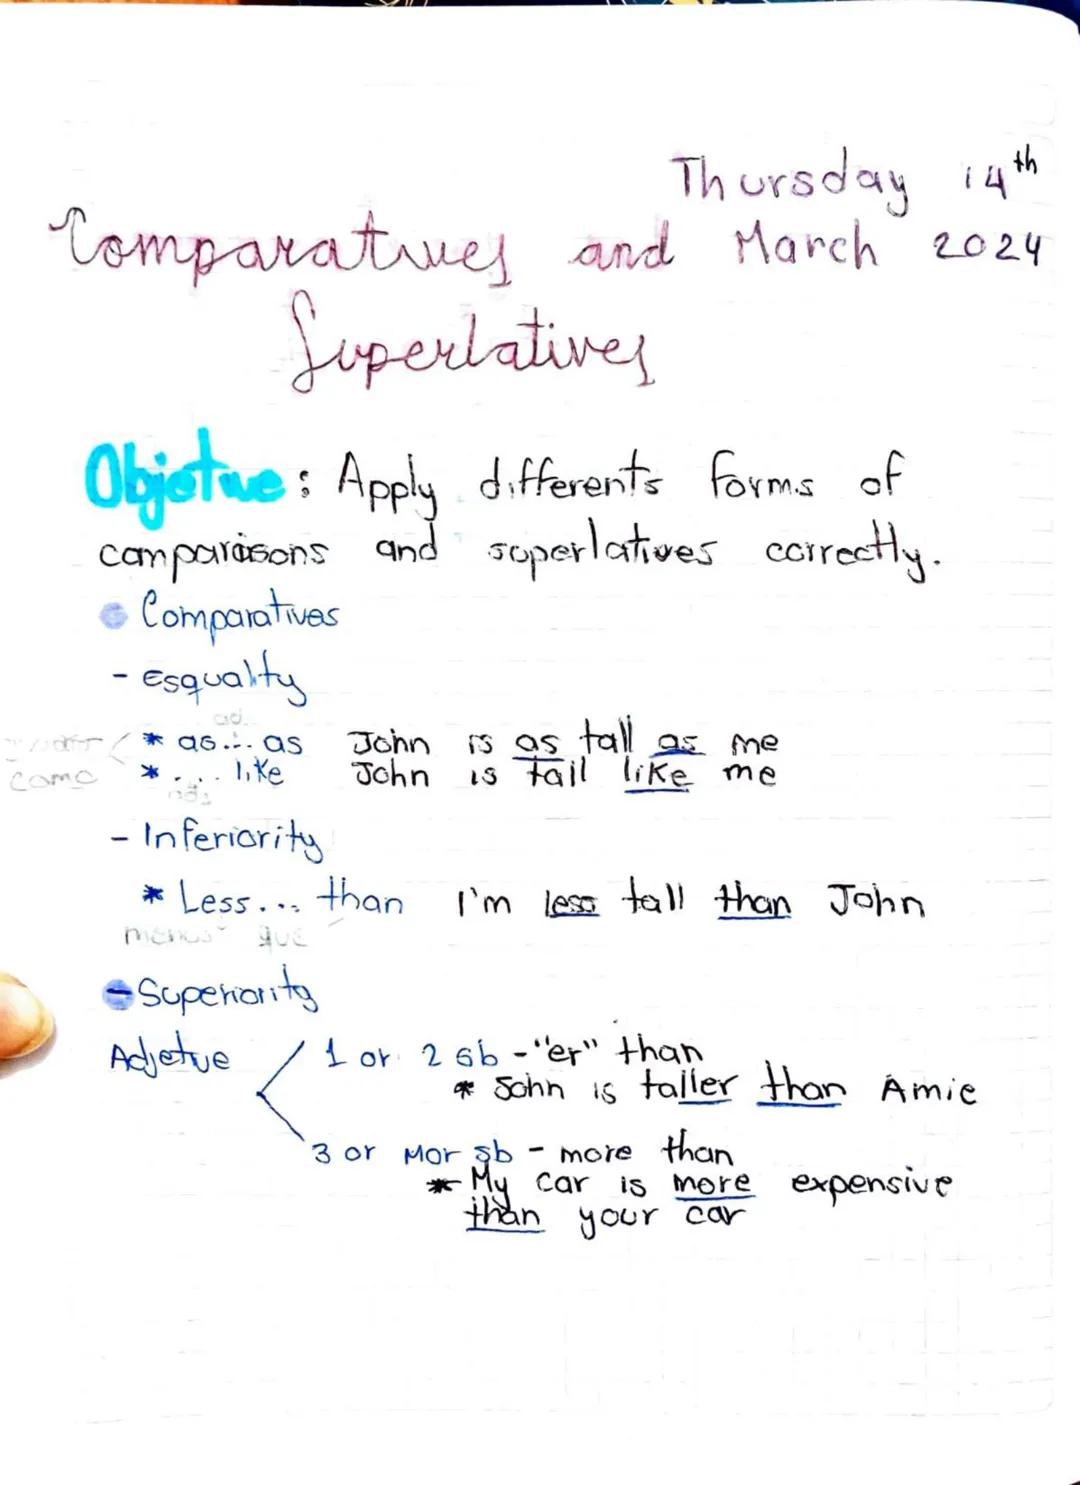 Thursday 14th
Comparatives and March 2024
Superlatives
Objetive: Apply differents forms of
comparisons and superlatives correctly.
Comparatives
- Esquality
ad.
* as... as John is as tall as me
como * .... like John is tall like me
- Inferiority
* Less... than I'm less tall than John
menos que
- Superiority
Adjetive 1 or 2 sb - "er" than
* John is taller than Amie
3 or Mor sb - more than
* My car is more expensive
than your car